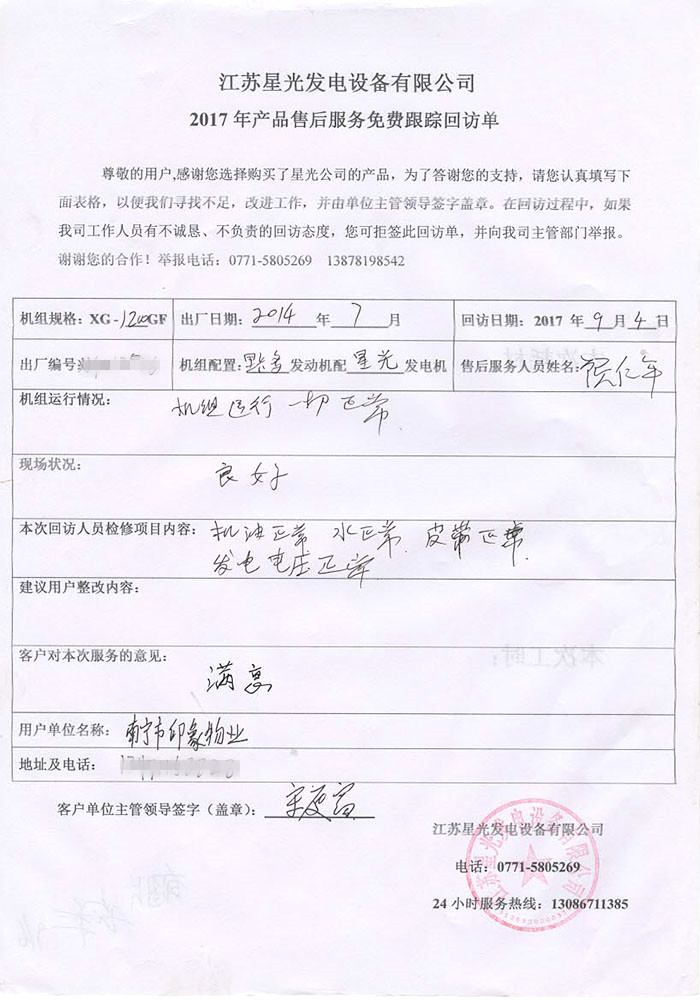 江苏星光发电设备有限公司
2017 年产品售后服务免费跟踪回访单
尊敬的用户,感谢您选择购买了星光公司的产品，为了答谢您的支持，请您认真填写下
面表格，以便我们寻找不足，改进工作，并由单位主管领导签字盖章。在回访过程中，如果
我司工作人员有不诚恳、不负责的回访态度，您可拒签此回访单，并向我司主管部门举报。
谢谢您的合作！举报电话：0771-5805269 13878198542
机组规格：XG -1200GF 出厂日期：2014 年 7 月 回访日期：2017 年 9 月 4 日
出厂编号 机组配置： 发动机配 星光 发电机 售后服务人员姓名：
机组运行情况： 机组运行一切正常
现场状况： 良好
本次回访人员检修项目内容： 机油正常 水正常 皮带正常
发电电压正常
建议用户整改内容：
客户对本次服务的意见：
满意
用户单位名称： 南宁市印象物业
地址及电话：
客户单位主管领导签字（盖章）：
江苏星光发电设备有限公司
电话：0771-5805269
24 小时服务热线：13086711385
江苏星光发电设备有限公司
本次工时：